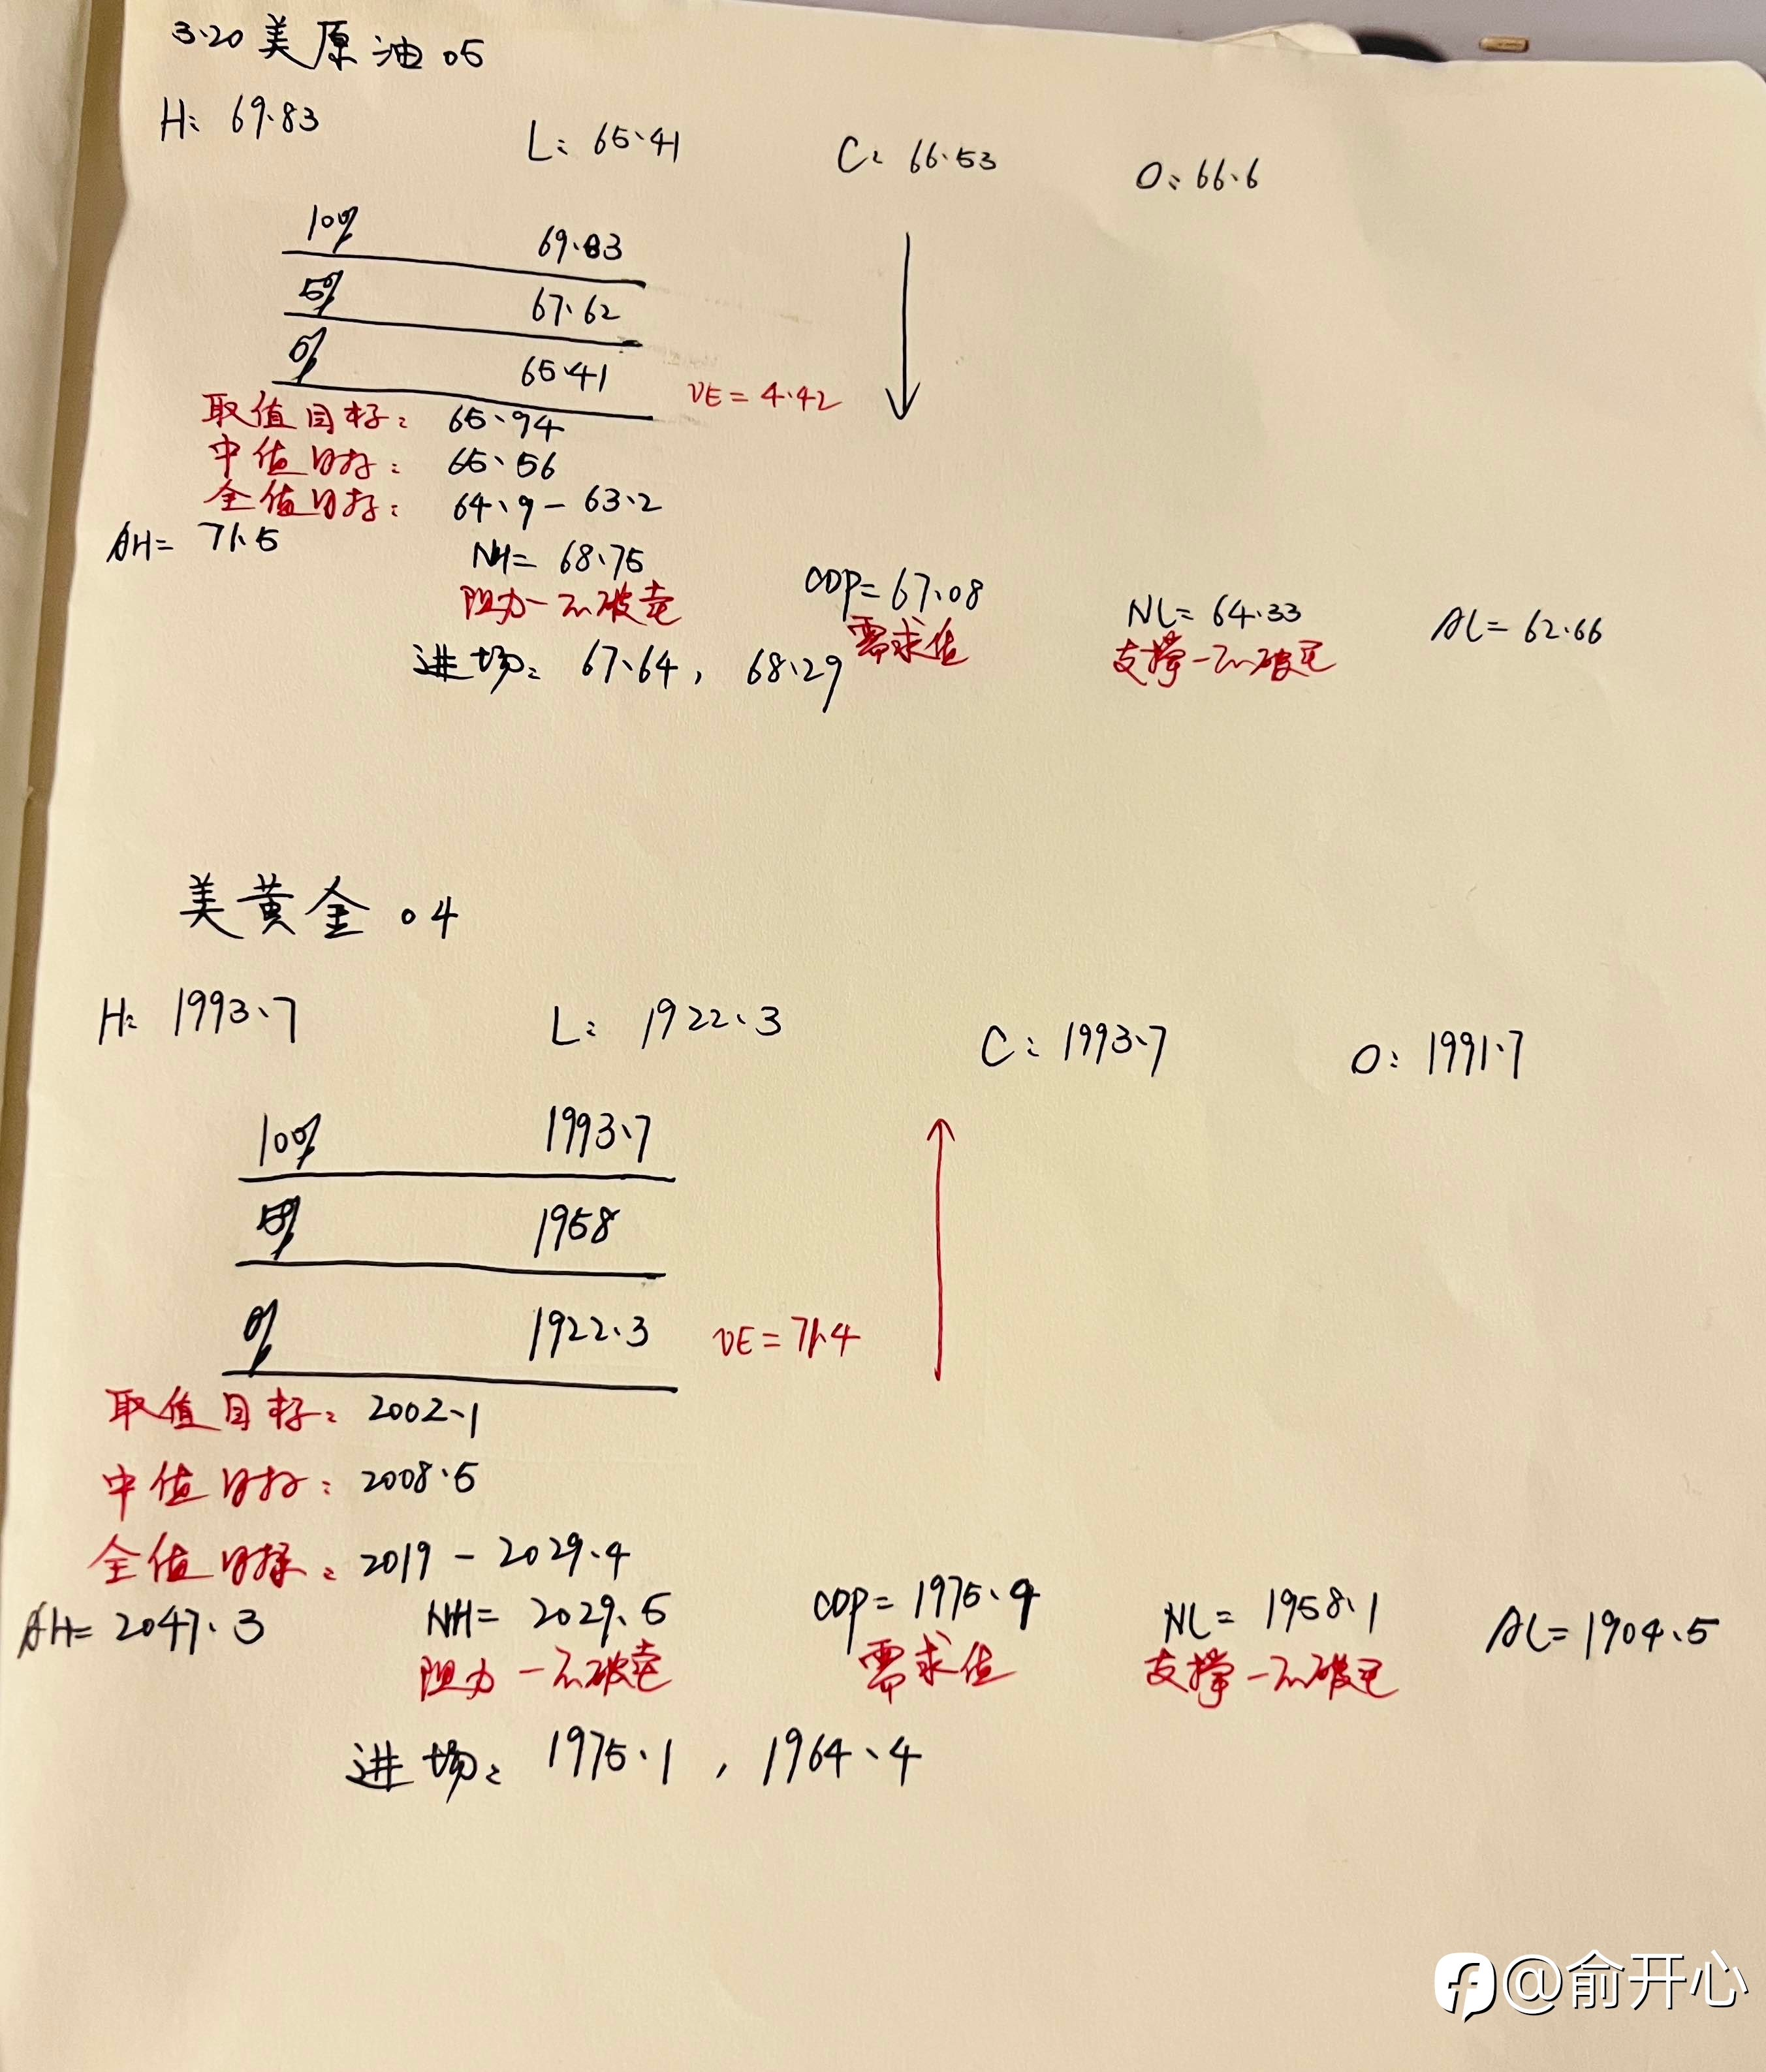 3.20 美原油 05
H: 69.83 L: 65.41 C: 66.53 O: 66.6
100% 69.83
50% 67.62
0% 65.41
VE = 4.42
取值目标: 65.94
中值目标: 65.56
全值目标: 64.9 - 63.2
AH = 71.5 NH = 68.75 CDP = 67.08 NL = 64.33 AL = 62.66
阻力-不破卖 需求值 支撑-不破买
进场: 67.64, 68.29
美黄金 04
H: 1993.7 L: 1922.3 C: 1993.7 O: 1991.7
100% 1993.7
50% 1958
0% 1922.3
VE = 71.4
取值目标: 2002.1
中值目标: 2008.5
全值目标: 2019 - 2029.4
AH = 2047.3 NH = 2029.5 CDP = 1975.9 NL = 1958.1 AL = 1904.5
阻力-不破卖 需求值 支撑-不破买
进场: 1975.1, 1964.4
@俞开心